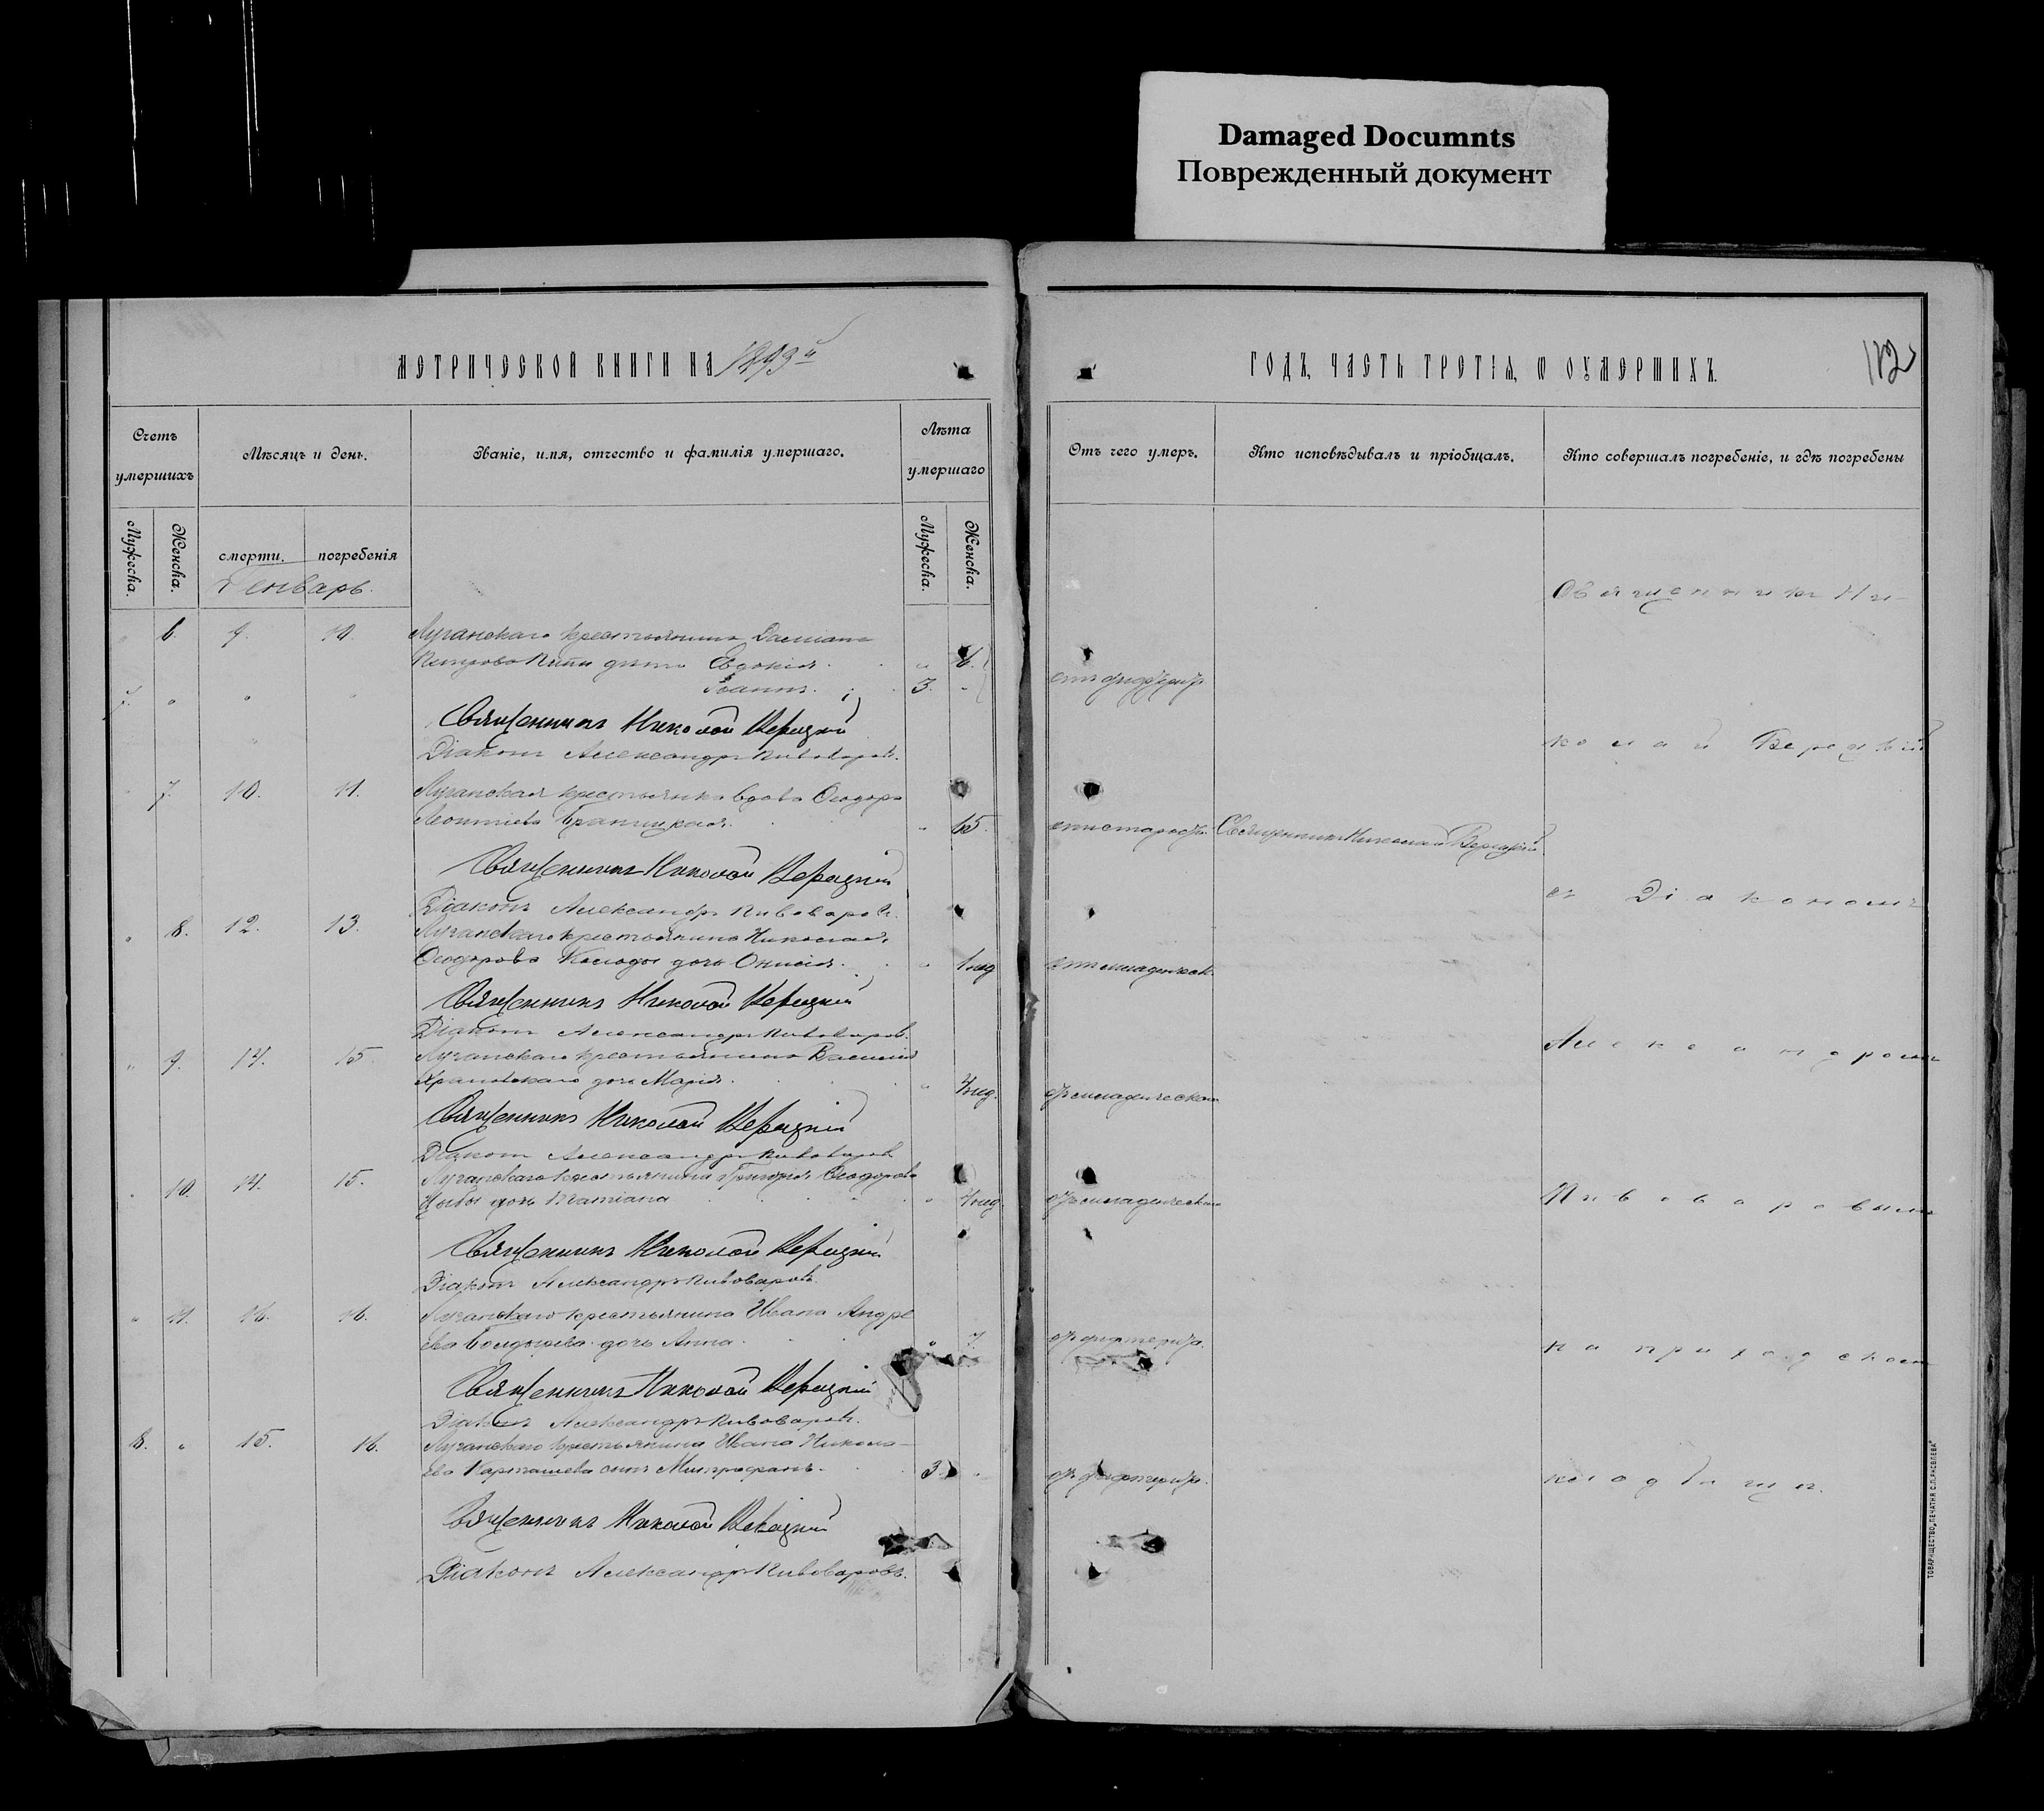 Damaged Documnts
Поврежденный документ
МЕТРИЧЕСКОЙ КНИГИ НА 1893й
ГОДЪ, ЧАСТЬ ТРЕТІЯ, Ѡ ОУМЕРШИХЪ.
112
Счетъ умершихъ
Мѣсяцъ и день.
Званіе, имя, отчество и фамилія умершаго.
Лѣта умершаго
Отъ чего умеръ.
Кто исповѣдывалъ и пріобщалъ.
Кто совершалъ погребеніе, и гдѣ погребены
Мужеска.
Женска.
смерти.
погребенія
Мужеска.
Женска.
Генварь.
Священникъ Ни-
6. 9. 10. Луганскаго крестьянина Даміана
дѣти Евдокія. 6.
7. Іоаннъ. 3. отъ дифтерита.
Священникъ Николай Верецкій
Діаконъ Александръ Пивоваровъ.
колай Верецкій
7. 10. 11. Луганская крестьянка вдова Ѳеодора
Леонтіева 65. отъ старости. Священникъ Николай Верецкій
Священникъ Николай Верецкій
съ Діакономъ
Діаконъ Александръ Пивоваровъ.
8. 12. 13. Луганскаго крестьянина Николая
Ѳеодорова Колоды дочь Онисія. 1 нед отъ младенческ.
Священникъ Николай Верецкій
Діаконъ Александръ Пивоваровъ.
Александромъ
9. 14. 15. Луганскаго крестьянина Василія
дочь Марія. нед. отъ младенческой
Священникъ Николай Верецкій
Діаконъ Александръ Пивоваровъ
10. 14. 15. Луганскаго крестьянина Григорія Ѳеодорова
Цыбы дочь Татіана нед. отъ младенческой
Пивоваровымъ
Священникъ Николай Верецкій
Діаконъ Александръ Пивоваровъ.
11. 16. 16. Луганскаго крестьянина Ивана Андре
ева дочь Анна. 7. отъ дифтерита.
на приходскомъ
Священникъ Николай Верецкій
Діаконъ Александръ Пивоваровъ.
8. 15. 16. Луганскаго крестьянина Ивана Никола-
ева Карташева сынъ Митрофанъ. 3. отъ дифтерита.
кладбищѣ.
Священникъ Николай Верецкій
Діаконъ Александръ Пивоваровъ.
ТОВАРИЩЕСТВО „ПЕЧАТНЯ С.П.ЯКОВЛЕВА"